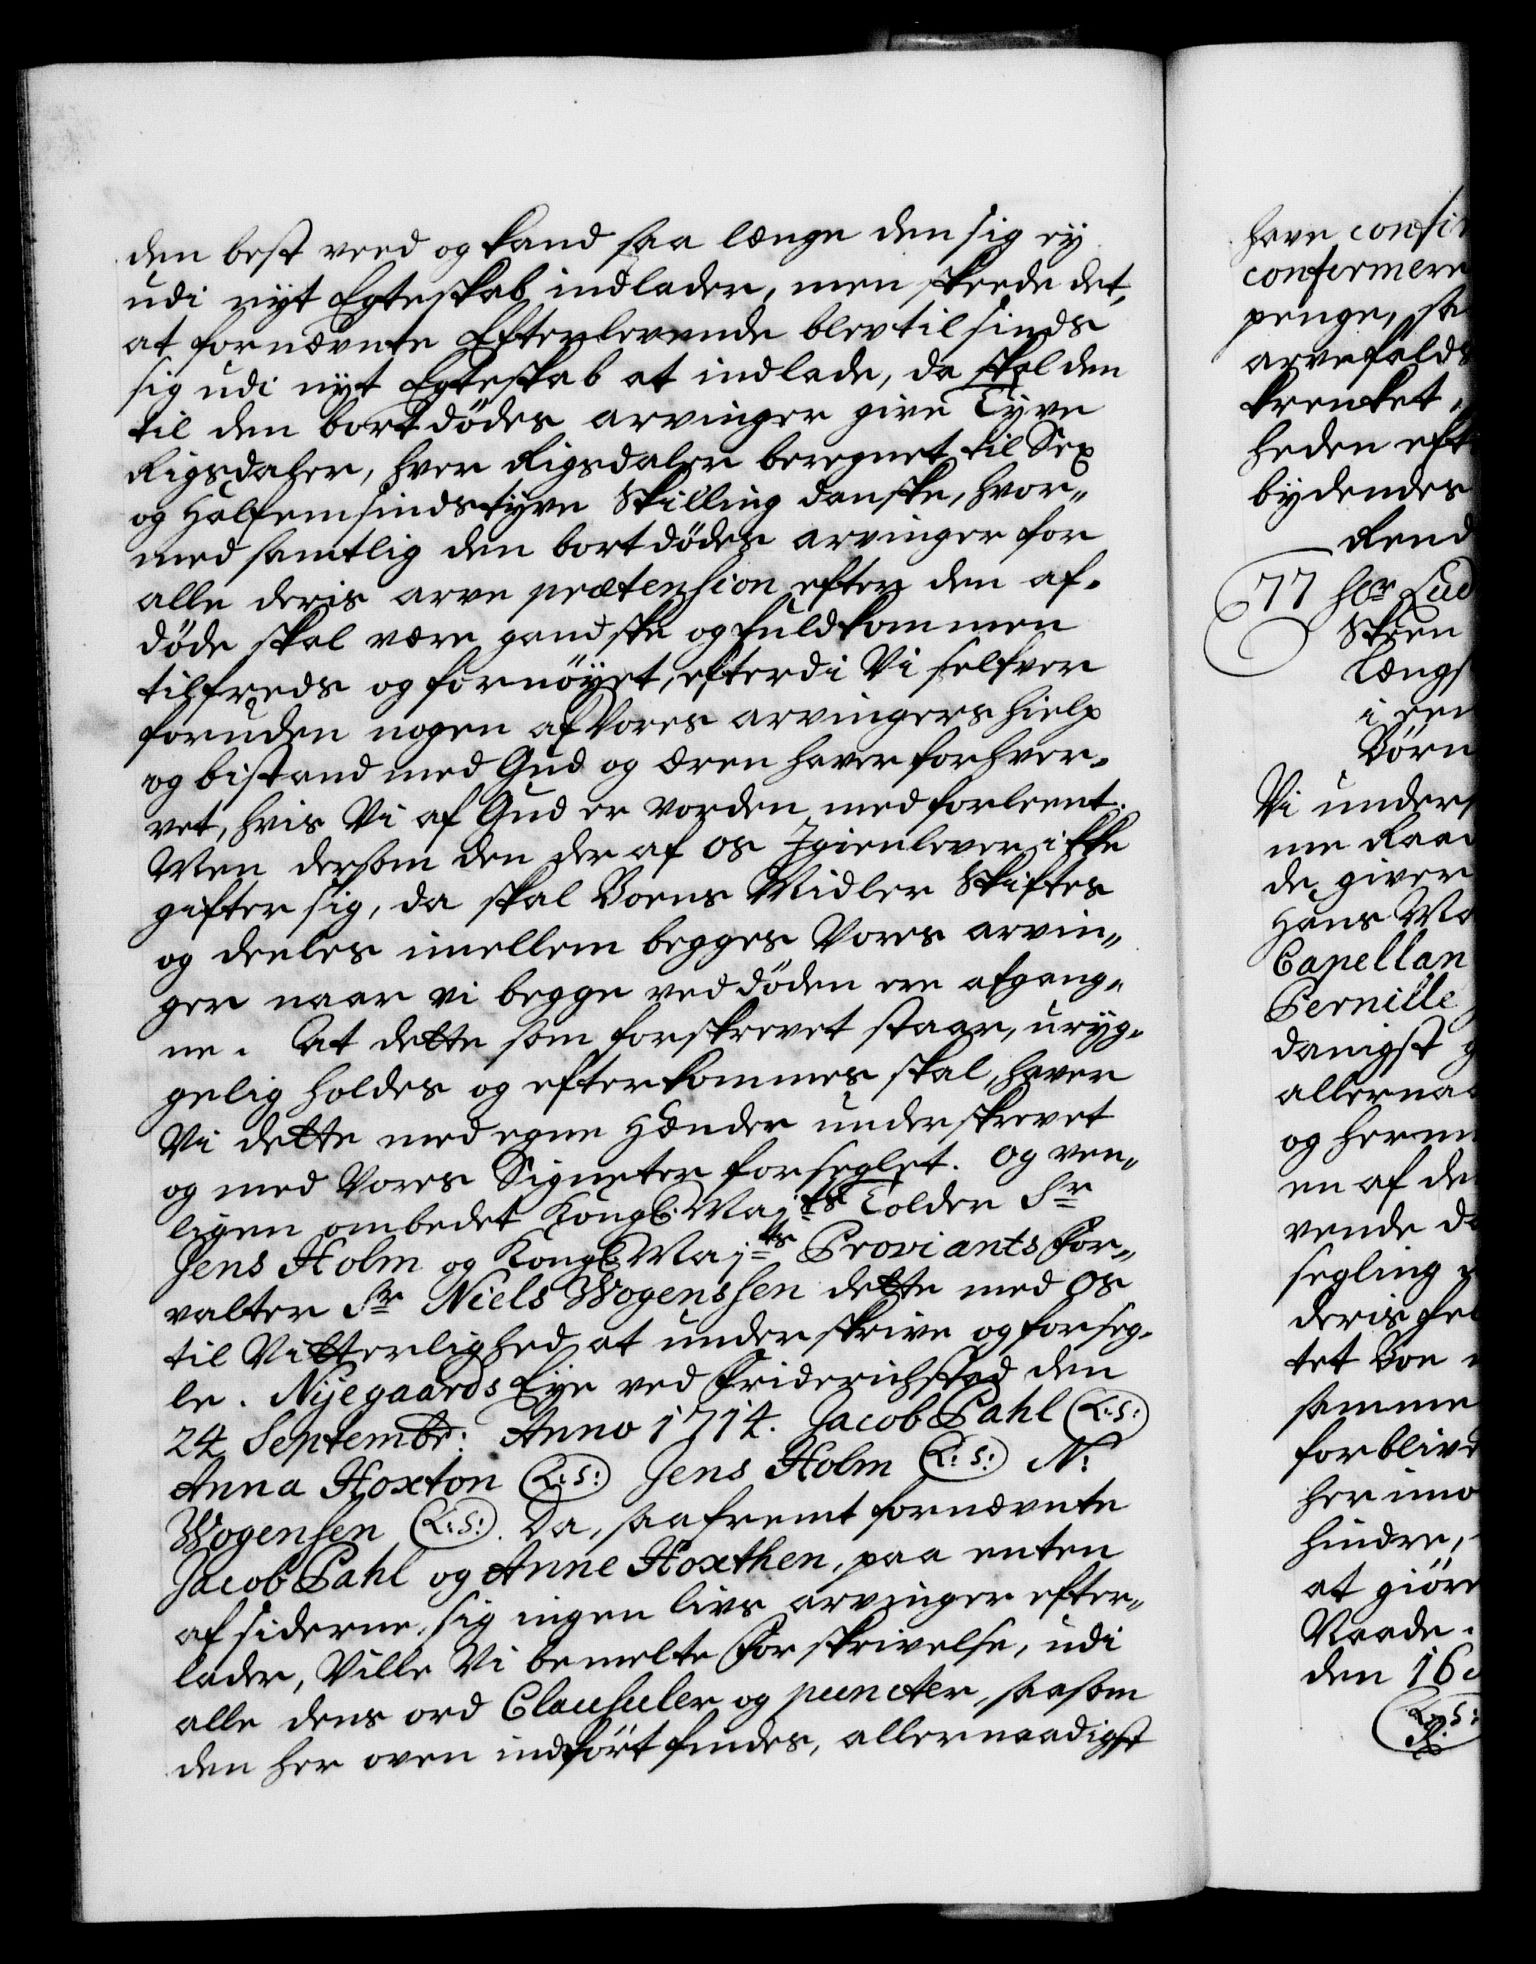 den best veed og kand saa længe den sig ey
udi nyt Egteskab indlader, men skeede det,
at fornævnte Efterlevende blev til sinds
sig udi nyt Egteskab at indlade, da skal den
til den bortdødes arvinger give Tyve
Rigsdaler, hver Rigsdaler beregnet til Sex
og Halfemsindstyve Skilling danske, hvor„
med samtlig den bortdødes arvinger for
alle deris arve prætension efter den af„
døde skal være gandske og fuldkommen
tilfreds og fornøyet, efterdi Vi selfver
foruden nogen af Vores arvingers hielp
og bistand med Gud og æren haver forhver„
vet, hvis Vi af Gud er vorden med forleent.
Men dersom den der af os Igienlever ikke
gifter sig, da skal Boens Midler Skiftes
og deeles imellem begges Vores arvin„
ger naar vi begge ved døden ere afgang„
ne. At dette som forskrevet staar, uryg„
gelig holdes og efterkommes skal, haver
Vi dette med egne Hænder underskrevet
og med Vores Signeter forseglet. Og ven„
ligen ombedet Kongl: Maj:ts Tolder Sr
Jens Holm og Kongl: Maj:ts Proviants For„
valter Sr Niels Wogenssen dette med os
til Vitterlighed at underskrive og forseg„
le. Nyegaards Eye ved Friderichstad den
24 Septembr: Anno 1714. Jacob Pahl (L:S:)
Anna Hoxton (L:S:) Jens Holm (L:S:) N:
Wogensen (L:S:). Da, saafremt fornævnte
Jacob Pahl og Anne Hoxthen, paa enten
af siderne, sig ingen livs arvinger efter„
lader, Ville Vi bemelte Forskrivelse, udi
alle dens ord Clausuler og puncter, saasom
den her oven indført findes, allernaadigst
have confir
confermere
penge, sa
arvefalds
krenket,
heden eft
bydendes
Rend
77 Hr Lud
Skeen
Længs
i een
Børn
Vi unders
me Raad
de giver
Hans Ma
Capellan
Pernille
danigst
allernaa
og herm
en af de
vende d
segling
deris fe
tet Boe
samme
forbliv
her imo
hindre,
at giøre
Naade.
den 16
(L:S: